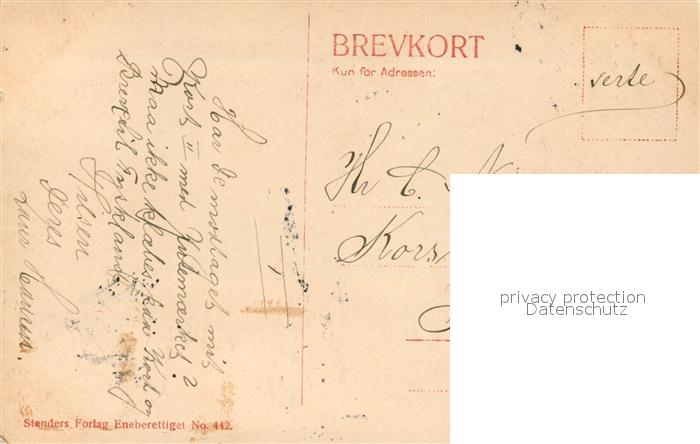 BREVKORT
Kun for Adressen:
verte
Har De modtaget mit
Kort II med Julemærket?
Maa ikke klæbes paa Kort og
Brev til Tyskland
Hilsen
Deres
Hr C.
Kors
privacy protection
Datenschutz
Stenders Forlag Eneberettiget No. 442.